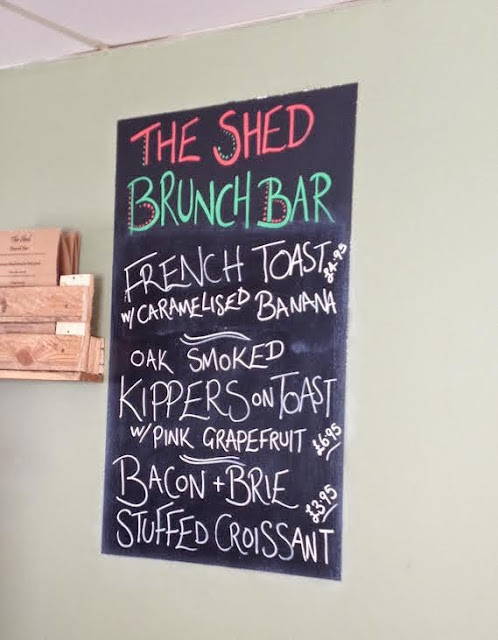 THE SHED
BRUNCH BAR
FRENCH TOAST £4.95
W/ CARAMELISED BANANA
OAK SMOKED
KIPPERS ON TOAST
W/ PINK GRAPEFRUIT £6.95
BACON + BRIE £3.95
STUFFED CROISSANT
The Shed